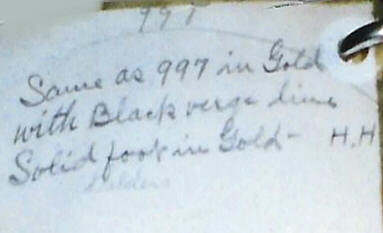 997
Same as 997 in Gold
with Black verge line
Solid foot in Gold - H.H